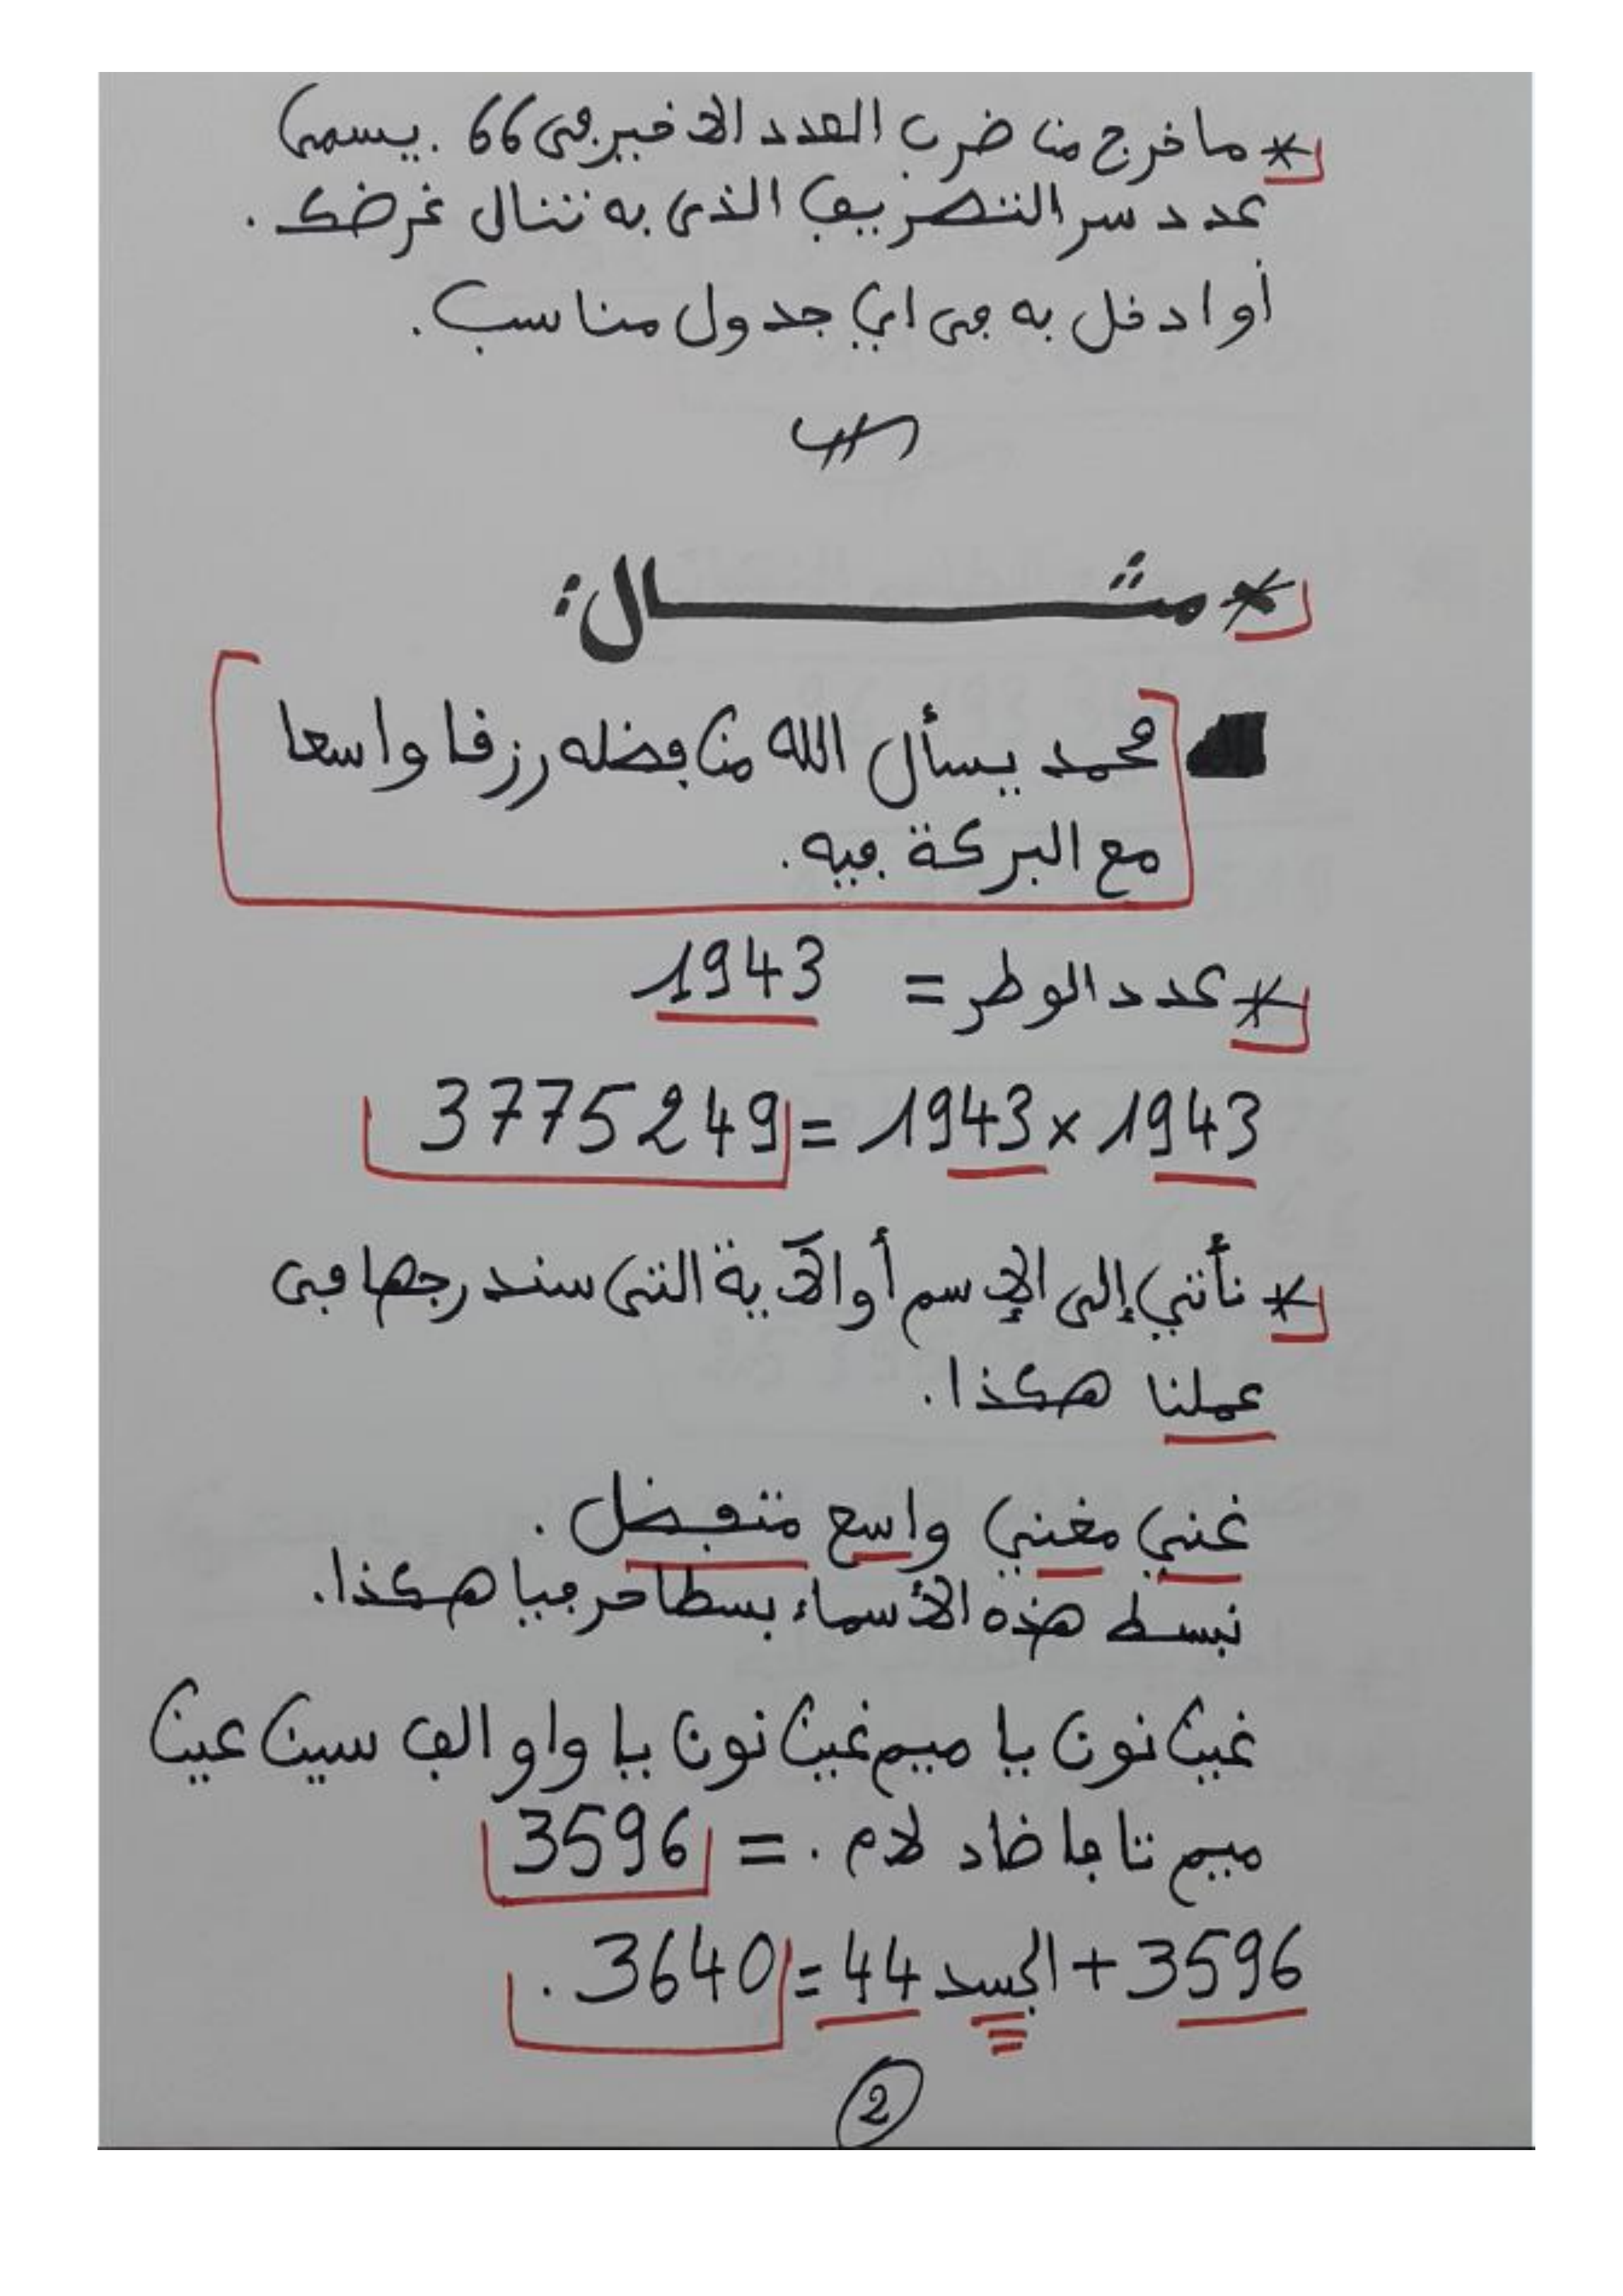 * ما خرج من ضرب العدد الاخير في 66. يسمى
عدد سر التصريف الذي به تنال غرضك.
أو ادخل به في اي جدول مناسب.
* مثال:
محمد يسأل الله من فضله رزقا واسعا
مع البركة فيه.
* عدد الوطر = 1943
1943 × 1943 = 3775249
* نأتي إلى الإسم أو الآية التي سندرجها في
عملنا هكذا.
غني مغني واسع متفضل.
نبسط هذه الأسماء بسطا حرفيا هكذا.
غين نون يا ميم غين نون يا واو الف سين عين
ميم تا فا ضاد لام. = 3596
3596 + الجسد 44 = 3640.
2